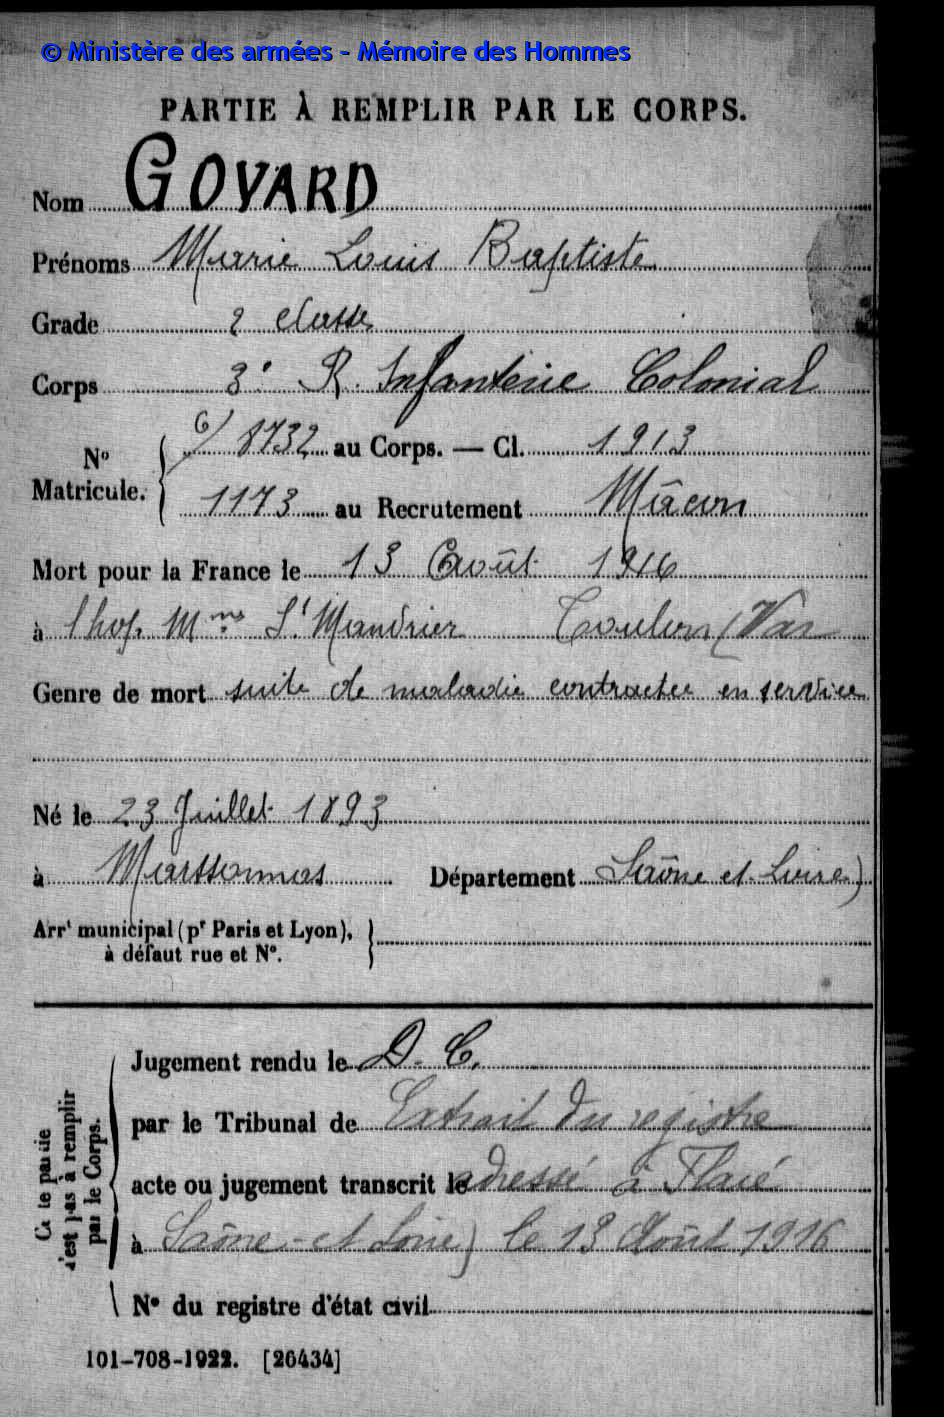 © Ministère des armées - Mémoire des Hommes
PARTIE À REMPLIR PAR LE CORPS.
Nom GOYARD
Prénoms Marie Louis Baptiste
Grade 2 classe
Corps 3e R. Infanterie Colonial
No Matricule. { C/ 8732 au Corps. — Cl. 1913
1173 au Recrutement Mâcon
Mort pour la France le 13 Août 1916
à l'hop. Mme St Mandrier Toulon (Var
Genre de mort suite de maladie contractée en service
Né le 23 Juillet 1893
à Marssonnas Département Saône et Loire)
Arrt municipal (pr Paris et Lyon),
à défaut rue et No.
Cette partie n'est pas à remplir par le Corps.
Jugement rendu le D. C.
par le Tribunal de Extrait du registre
acte ou jugement transcrit le adressé à Flacé
à Saône-et Loire) le 13 Août 1916
No du registre d'état civil
101-708-1922. [26434]